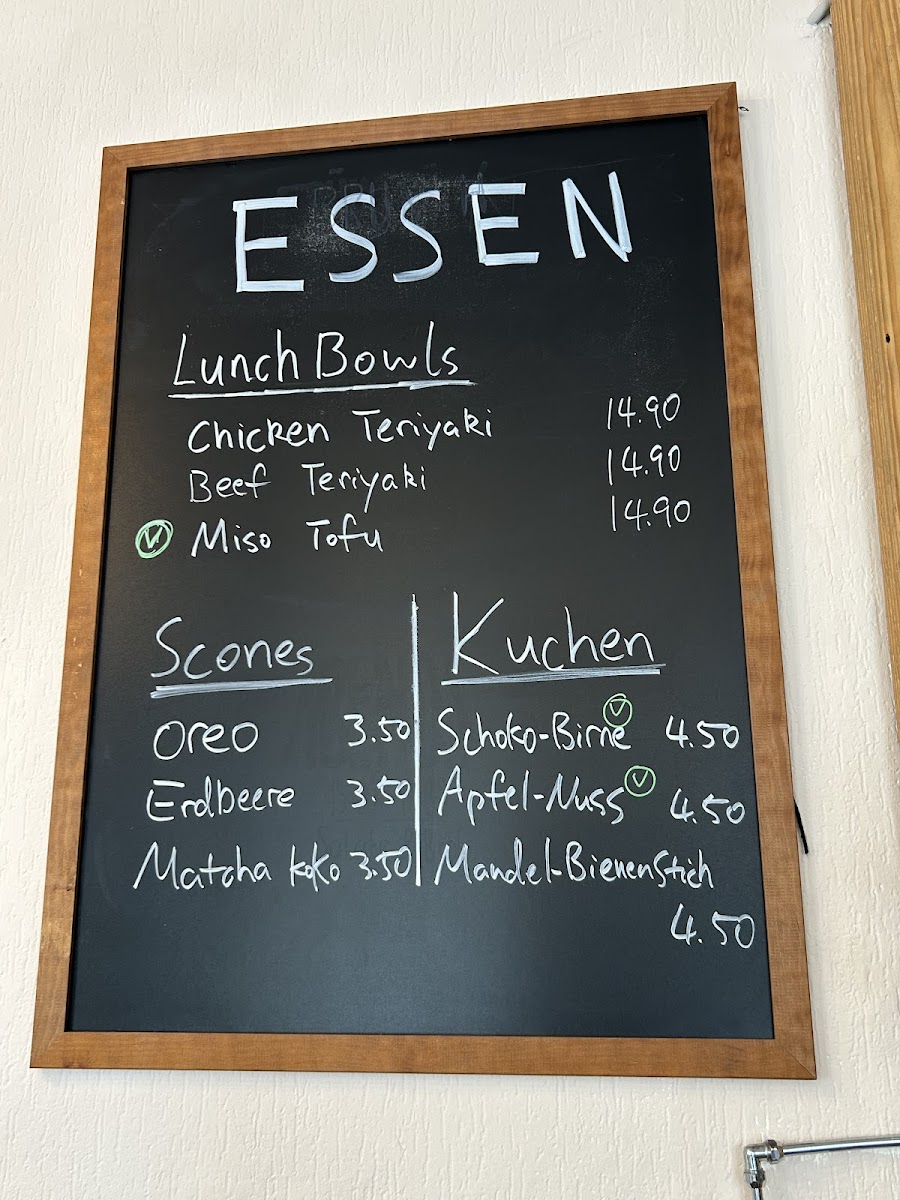 ESSEN
Lunch Bowls
Chicken Teriyaki 14.90
Beef Teriyaki 14.90
V Miso Tofu 14.90
Scones
Oreo 3.50
Erdbeere 3.50
Matcha Koko 3.50
Kuchen
Schoko-Birne V 4.50
Apfel-Nuss V 4.50
Mandel-Bienenstich
4.50